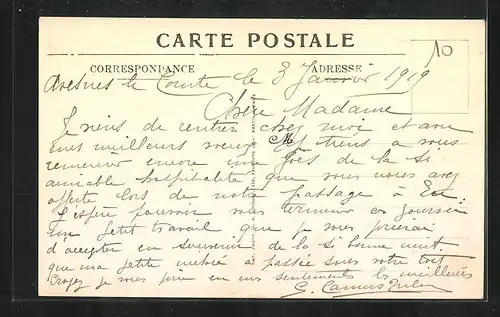 CARTE POSTALE
CORRESPONDANCE ADRESSE
10
Avesnes le Comte le 3 Janvier 1919
Chère Madame
Je viens de rentrer chez moi et avec
mes meilleurs voeux je tiens à vous
remercier encore une fois de la si
aimable hospitalité que vous nous avez
offerte lors de notre passage à Eu.
J'espère pouvoir vous terminer ces jours ci
un petit travail que je vous prierai
d'accepter en souvenir de la si bonne nuit
que ma petite a passée sous votre toit
Croyez je vous prie en mes sentiments les meilleurs
G. Camus